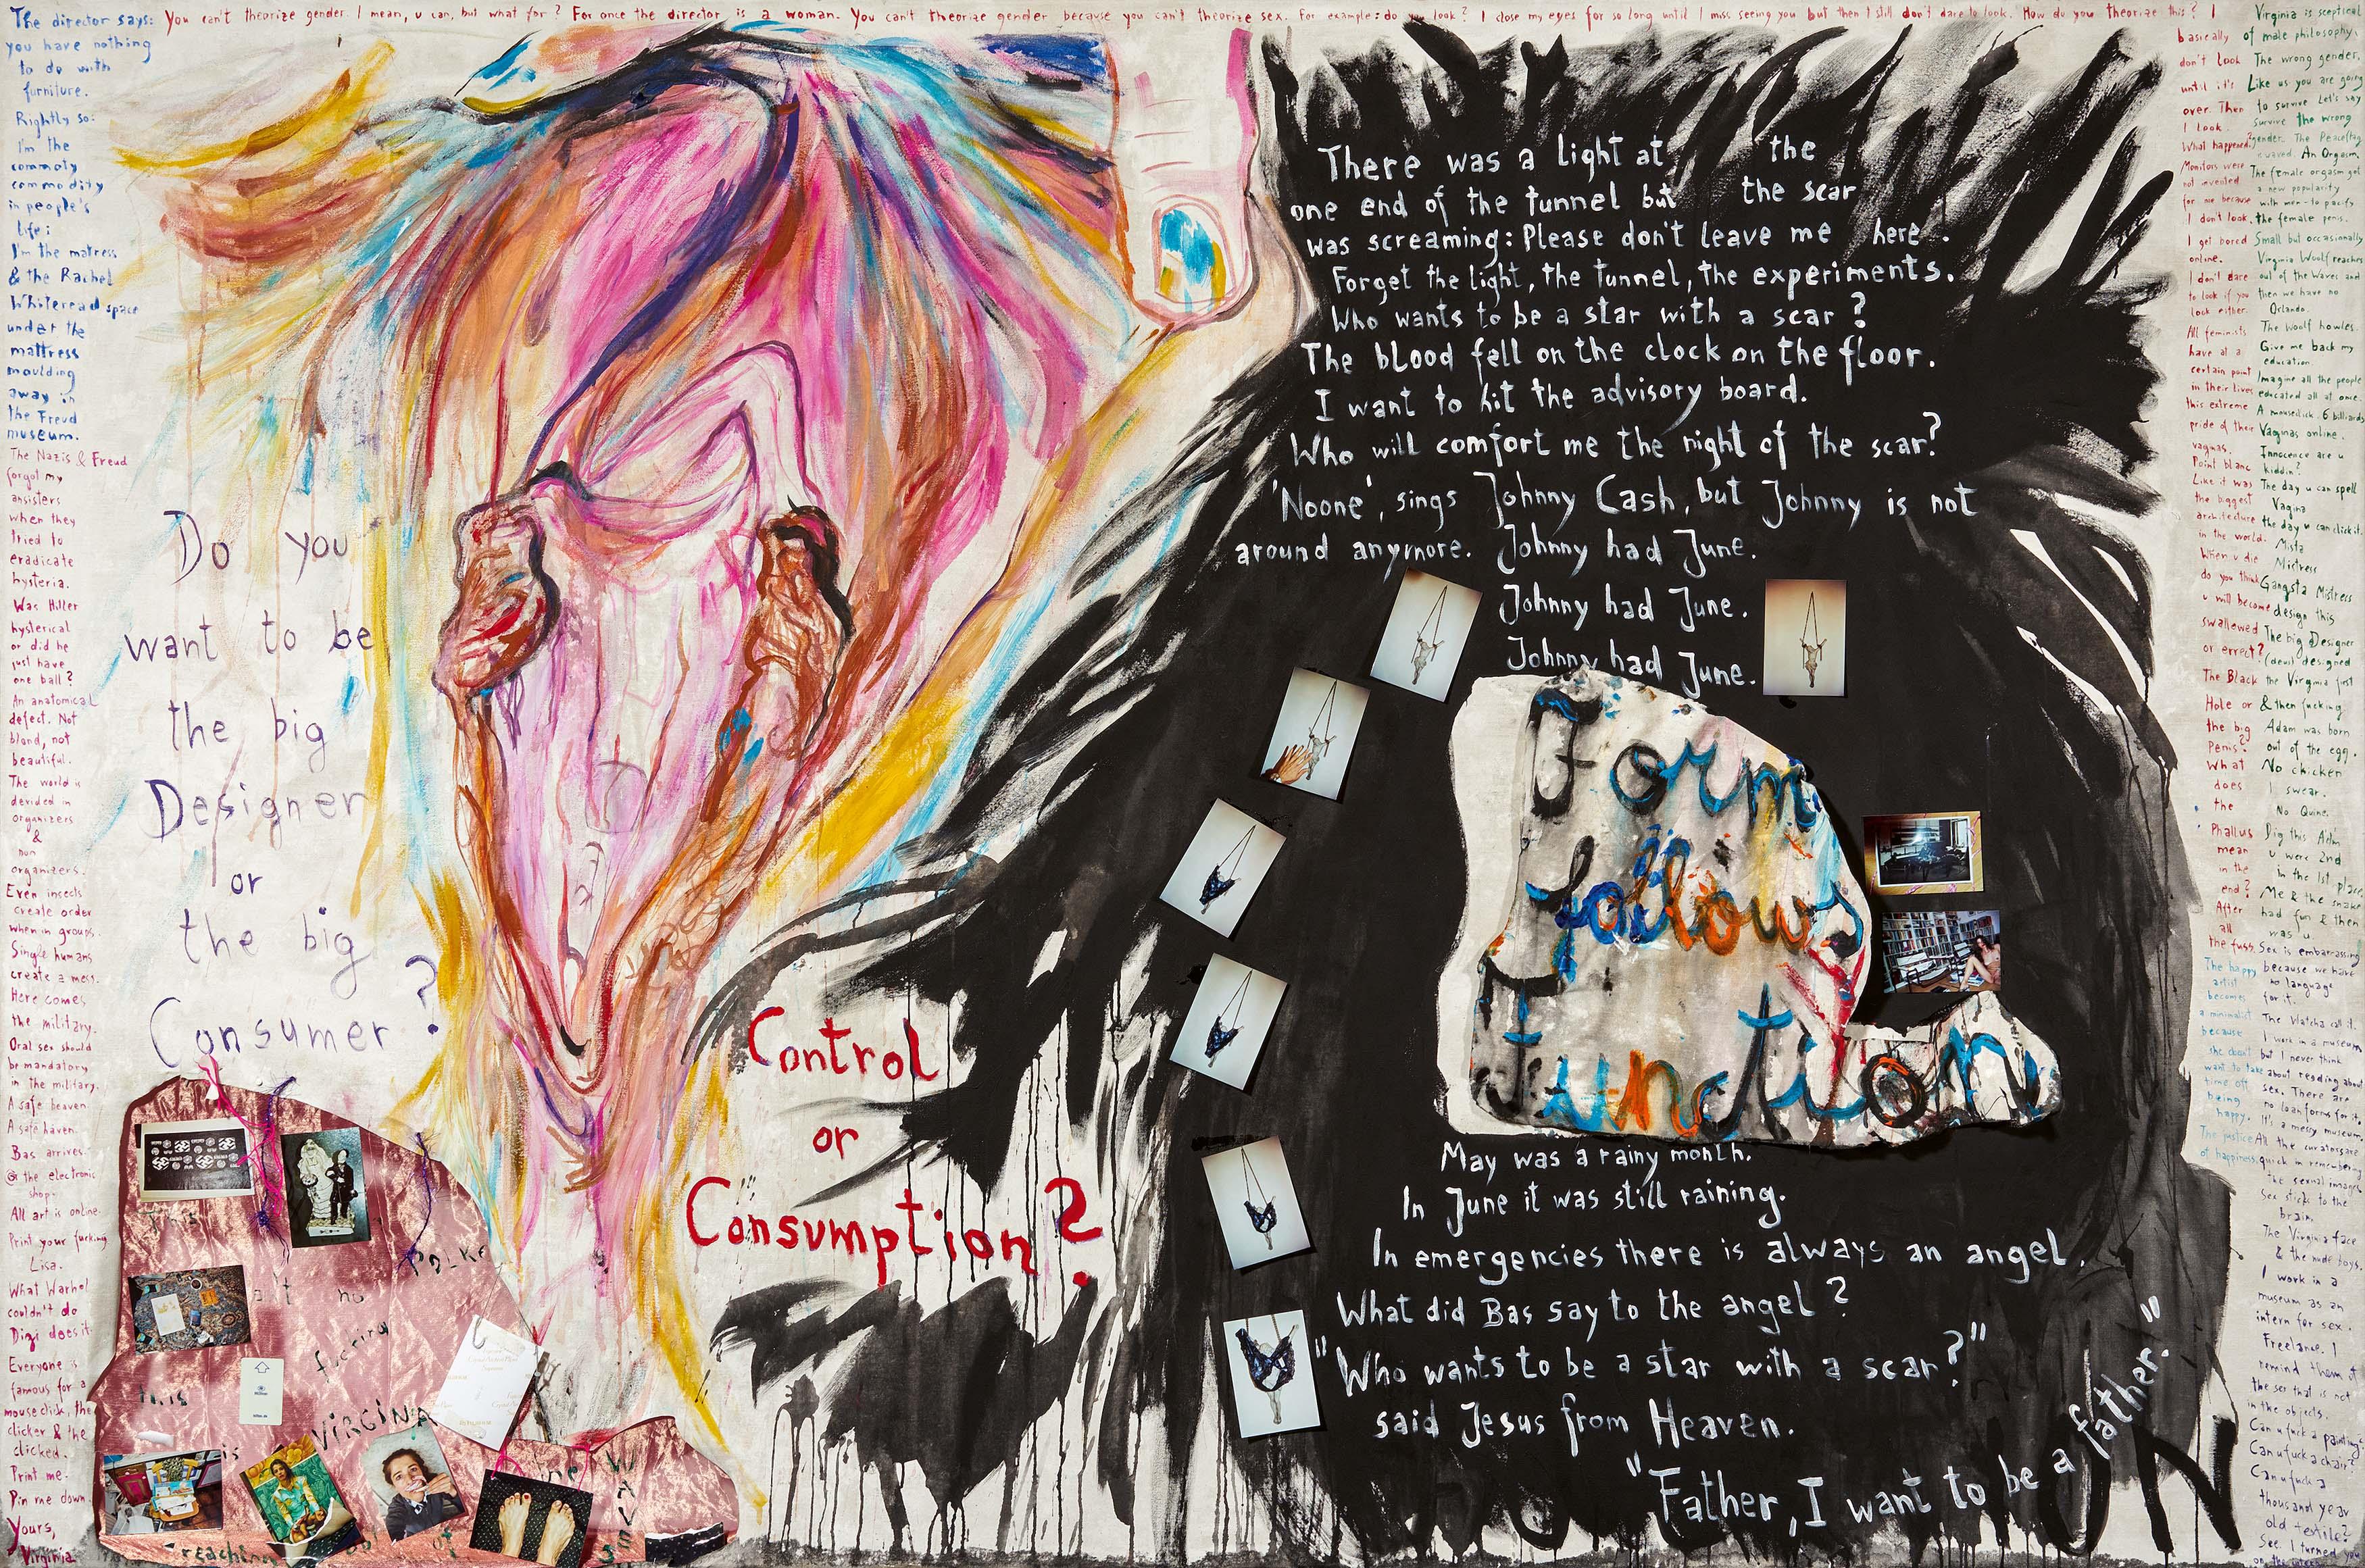 The director says:
you have nothing
to do with
furniture.
Rightly so:
I'm the
commoty
commodity
in people's
life:
I'm the matress
& the Rachel
Whiteread space
under the
mattress
moulding
away in
the Freud
museum.
The Nazis & Freud
forgot my
ansisters
when they
tried to
eradicate
hysteria.
Was Hitler
hysterical
or did he
just have
one ball?
An anatomical
defect. Not
blond, not
beautiful.
The world is
devided in
organizers
&
non
organizers.
Even insects
create order
when in groups.
Single humans
create a mess.
Here comes
the military.
Oral sex should
be mandatory
in the military.
A safe heaven
A safe haven.
Bas arrives.
@ the electronic
shop.
All art is online.
Print your fucking
Lisa.
What Warhol
couldn't do
Dizi does it.
Everyone is
famous for a
mouseclick, the
clicker & the
clicked.
Print me.
Pin me down.
Yours,
Virginia
You can't theorize gender. I mean, u can, but what for? For once the director is a woman. You can't theorize gender because you can't theorize sex. For example: do you look? I close my eyes for so long until I miss seeing you but then I still don't dare to look. How do you theorize this? I
basically
don't look
until it's
over. Then
I look.
What happened?
Monitors were
not invented
for me because
I don't look.
I get bored
online.
I don't dare
to look if you
look either.
All feminists
have at a
certain point
in their lives
this extreme
pride of their
vaginas.
Point blanc
Like it was
the biggest
architecture
in the world.
When u die
do you think
u will become
swallowed
or errect?
The Black
Hole or
the big
Penis?
What
does
the
Phallus
mean
in the
end?
After
all
the fuss
The happy
artist
becomes
a minimalist
because
she doesn't
want to take
time off
being
happy.
The justice
of happiness.
Virginia is sceptical
of male philosophy.
The wrong gender.
Like us you are going
to survive. Let's say
survive the wrong
gender. The Peaceflag
waved. An Orgasm
The female orgasm got
a new popularity
with men - to pacify
the female penis.
Small but occasionally
Virginia Woolf reaches
out of the Waves and
then we have no
Orlando.
The Woolf howles.
Give me back my
education.
Imagine all the people
educated all at once.
A mouseclick. 6 billiards
Vaginas online.
Innocence are u
kiddin?
The day u can spell
Vagina
the day u can click it.
Mista
Mistress
Gangsta Mistress
design this
The big Designer
(devil) designed
the Virginia first
& then fucking
Adam was born
out of the egg.
No chicken
I swear.
No Quine.
Dig this Adam
u were 2nd
in the 1st place
Me & the snake
had fun & then
was u.
Sex is embarrassing
because we have
no language
for it.
The Watcha call it.
I work in a museum
but I never think
about reading about
sex. There are
no loanforms for it.
It's a messy museum.
All the curators are
quick in remembering
the sexual images
Sex sticks to the
brain.
The Virginia face
& the nude boys.
I work in a
museum as an
intern for sex.
Freelance. I
remind them of
the sex that is not
in the objects.
Can u fuck a painting?
Can u fuck a chair?
Can u fuck a
thousand year
old textile?
See. I turned you
Do you
want to be
the big
Designer
or
the big
Consumer?
Control
or
Consumption?
There was a light at the
one end of the tunnel but the scar
was screaming: Please don't leave me here.
Forget the light, the tunnel, the experiments.
Who wants to be a star with a scar?
The blood fell on the clock on the floor.
I want to hit the advisory board.
Who will comfort me the night of the scar?
'Noone', sings Johnny Cash, but Johnny is not
around anymore. Johnny had June.
Johnny had June.
Johnny had June.
Form
follows
Function
May was a rainy month.
In June it was still raining.
In emergencies there is always an angel.
What did Bas say to the angel?
"Who wants to be a star with a scar?"
said Jesus from Heaven.
"Father, I want to be a father."
This
POLKE
no
fucking
this
is
VIRGINA
reaching
out of
the WAVES